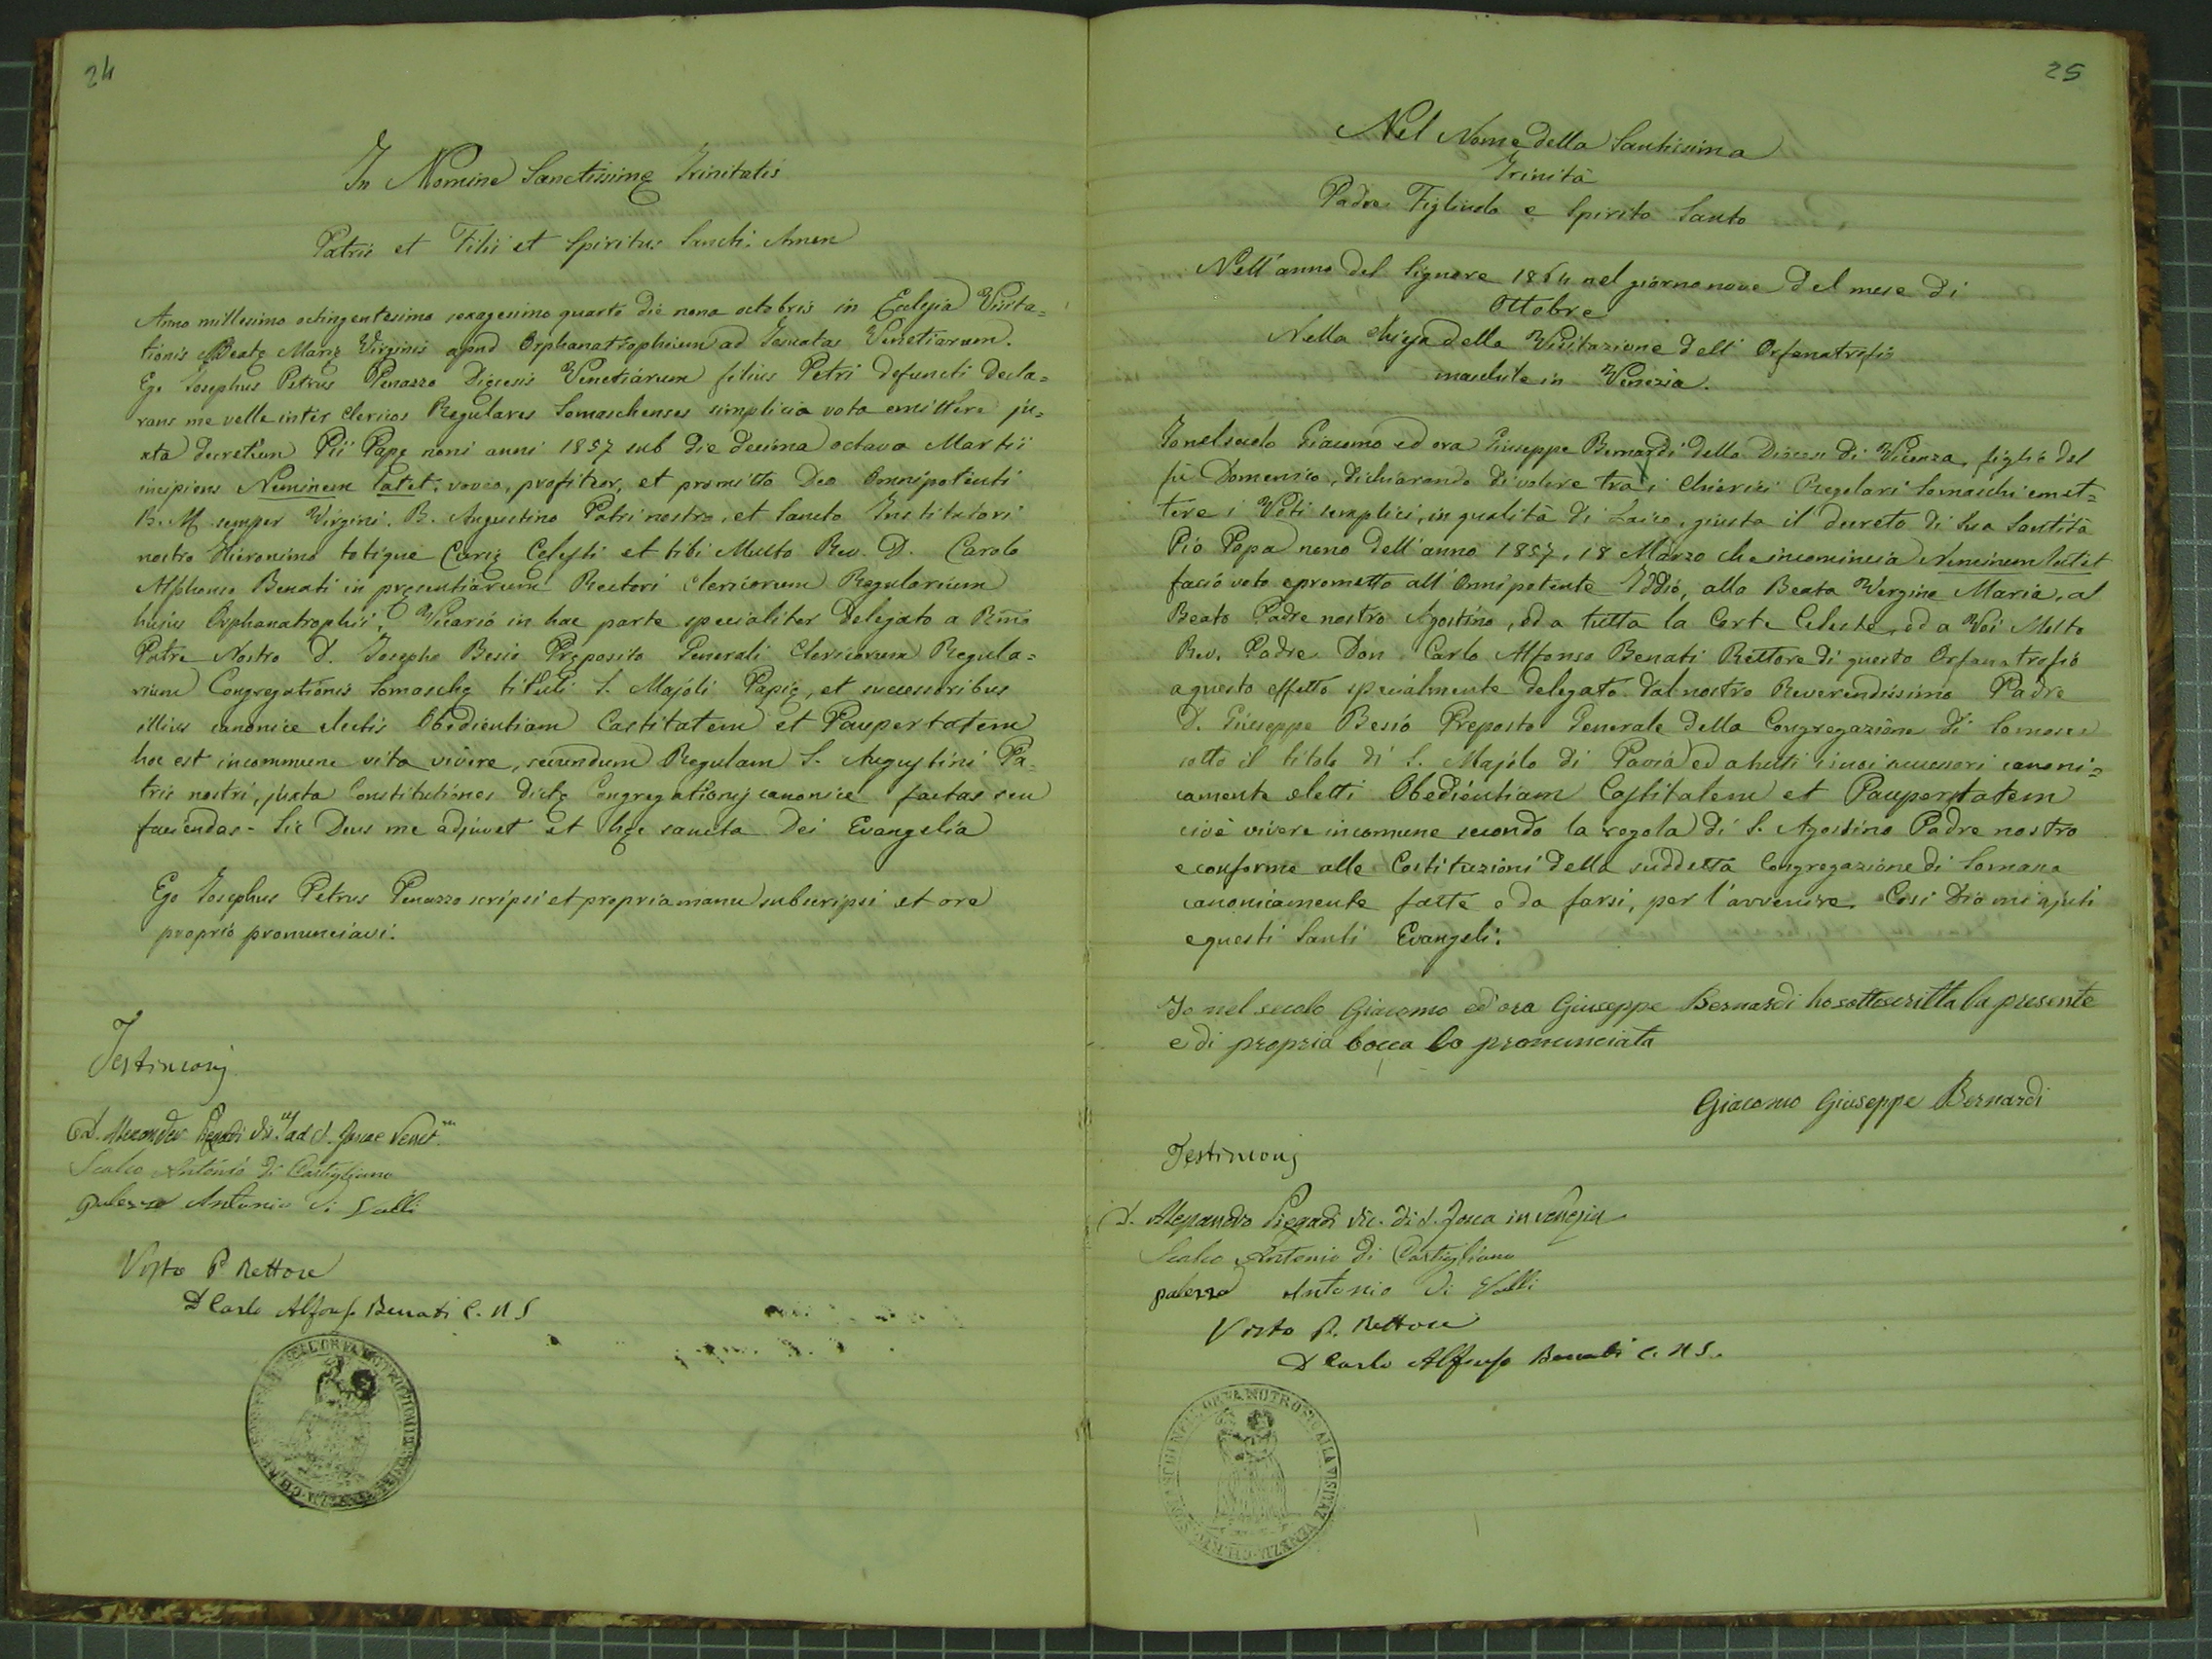 24
In Nomine Sanctissimę Trinitatis
Patris et Filii et Spiritus Sancti. Amen
Anno millesimo octingentesimo sexagesimo quarto die nona octobris in Ecclesia Visita=
tionis Beatę Marię Virginis apud Orphanatrophium ad Jesuatas Venetiarum.
Ego Josephus Petrus Penazzo Dięcesis Venetiarum filius Petri defuncti decla=
rans me velle inter clericos Regulares Somaschenses simplicia vota emittere ju=
xta decretum Pii Papę noni anni 1857 sub die decima octava Martii
incipiens Neminem latet, voveo, profiteor, et promitto Deo Omnipotenti
B. M. semper Virgini, B. Augustino Patri nostro, et Sancto Institutori
nostro Hieronimo totique Curię Celesti et tibi Multo Rev. D. Carolo
Alphonso Benati in pręsentiarum Rectori Clericorum Regularium
hujus Orphanatrophii, Vicario in hac parte specialiter delegato a Rm̃o
Patre Nostro D. Josepho Besio Pręposito Generali Clericorum Regula=
rium Congregationis Somaschę tituli S. Majoli Papię, et successoribus
illius canonice electis Obedientiam Castitatem et Paupertatem
hoc est incommune vita vivere, secundum Regulam S. Augustini Pa=
tris nostri, juxta Constitutiones dictę Congregationis canonice factas seu
faciendas - Sic Deus me adjuvet et hęc sancta Dei Evangelia
Ego Josephus Petrus Penazzo scripsi et propria manu subscripsi et ore
proprio pronunciavi.
Testimonj
D. Alexander Piegadi ad S. Foscae Venet.
Scalco Antonio di Castigliano
palezza Antonio di Valli
Visto P Rettore
D Carlo Alfonso Benati C. R S
25
Nel Nome della Santissima
Trinità
Padre Figliuolo e Spirito Santo
Nell'anno del Signore 1864 nel giorno nove del mese di
Ottobre
Nella chiesa della Visitazione dell' Orfanatrofio
maschile in Venezia.
Io nel secolo Giacomo ed ora Giuseppe Bernardi della Diocesi di Vicenza, figlio del
fù Domenico, dichiarando di volere tra i Chierici Regolari Somaschi emet=
tere i Voti semplici, in qualità di Laico, giusta il decreto di Sua Santità
Pio Papa nono dell'anno 1857, 18 Marzo che incomincia Neminem latet
facio voto e prometto all'Onnipotente Iddio, alla Beata Vergine Maria, al
Beato Padre nostro Agostino, ed a tutta la Corte Celeste, ed a Voi Molto
Rev. Padre Don Carlo Alfonso Benati Rettore di questo Orfanatrofio
a questo effetto specialmente delegato dal nostro Reverendissimo Padre
D. Giuseppe Besio Preposto Generale della Congregazione di Somasca
sotto il titolo di S. Majolo di Pavia ed a tutti i suoi successori canoni=
camente eletti Obedientiam Castitatem et Paupertatem
cioè vivere incomune secondo la regola di S. Agostino Padre nostro
e conforme alle Costituzioni della suddetta Congregazione di Somasca
canonicamente fatte o da farsi, per l'avvenire. Così Dio mi ajuti
e questi Santi Evangeli.
Io nel secolo Giacomo ed ora Giuseppe Bernardi ho sottoscritta la presente
e di propria bocca lo pronunciata
Giacomo Giuseppe Bernardi
Testimonj
D. Alessandro Piegadi Vic. di S. Fosca in Venezia
Scalco Antonio di Castigliano
palezza Antonio di Valli
Visto P. Rettore
D Carlo Alfonso Benati C. R S.
CH. REG. SOMASCHI NELL'ORFANOTROFIO ALLA VISITAZ VENEZIA